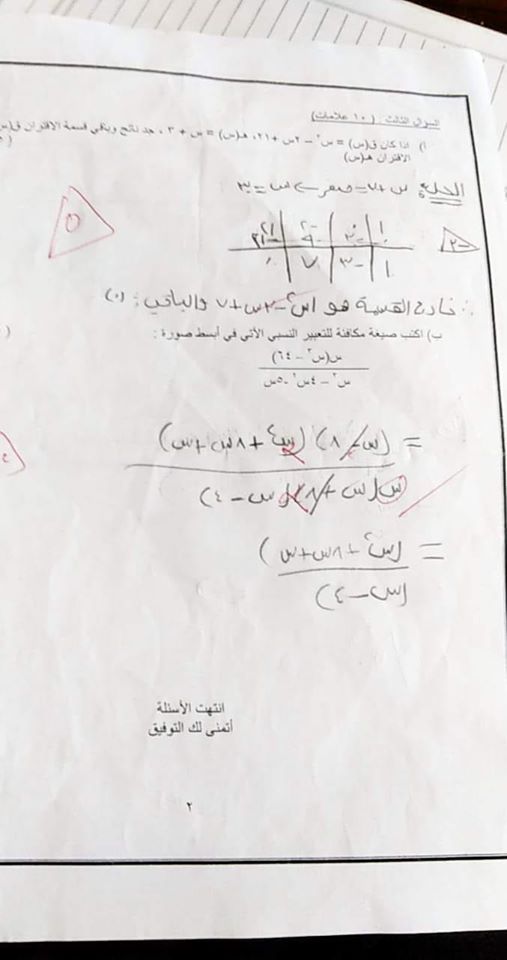 السؤال الثالث : ( ١٠ علامات)
أ) اذا كان ق(س) = س٣ – ٢س + ٢١، هـ(س) = س + ٣ ، جد ناتج وباقي قسمة الاقتران ق(س
الاقتران هـ(س)
الحل: س + ٣ = صفر ← س = -٣
٥
١ | ٠ | -٢ | ٢١
-٣ | ٩ | -٢١
-٣
١ | -٣ | ٧ | ٠
∴ خارج القسمة هو س٢ - ٣س + ٧ والباقي: (٠)
ب) اكتب صيغة مكافئة للتعبير النسبي الآتي في أبسط صورة :
س(س٢ – ٦٤)
س٣ – ٤س٢ -٥س
= (س - ٨) (س٢ + ٨س + س)
س(س + ٨)(س - ٤)
= (س٢ + ٨س + س)
(س - ٤)
انتهت الأسئلة
أتمنى لك التوفيق
٢